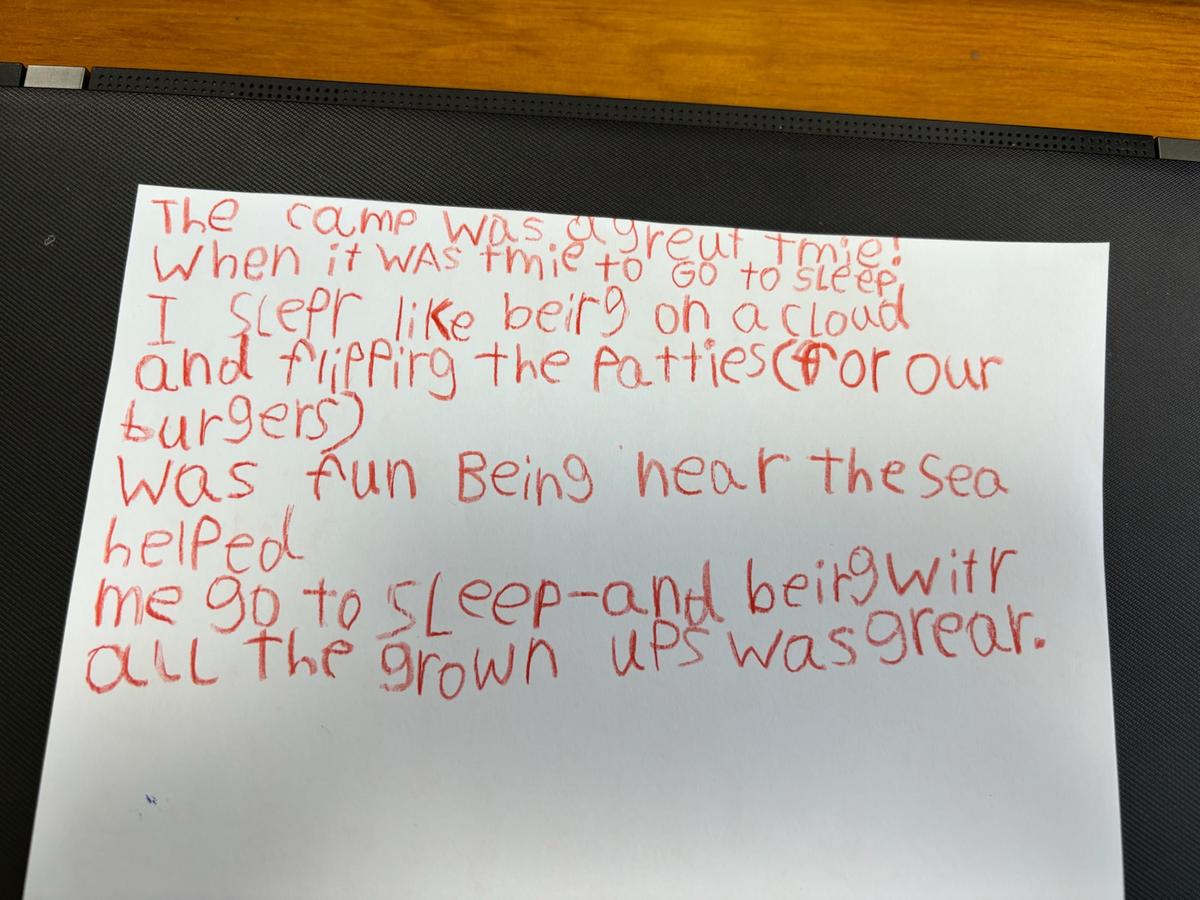 The camp was a great tmie!
When it WAS tmie to GO to sleep,
I slepr like beirg on a cloud
and flippirg the patties (for our
burgers)
was fun Being near the sea
helped
me go to sleep-and beirg witr
all the grown ups was grear.